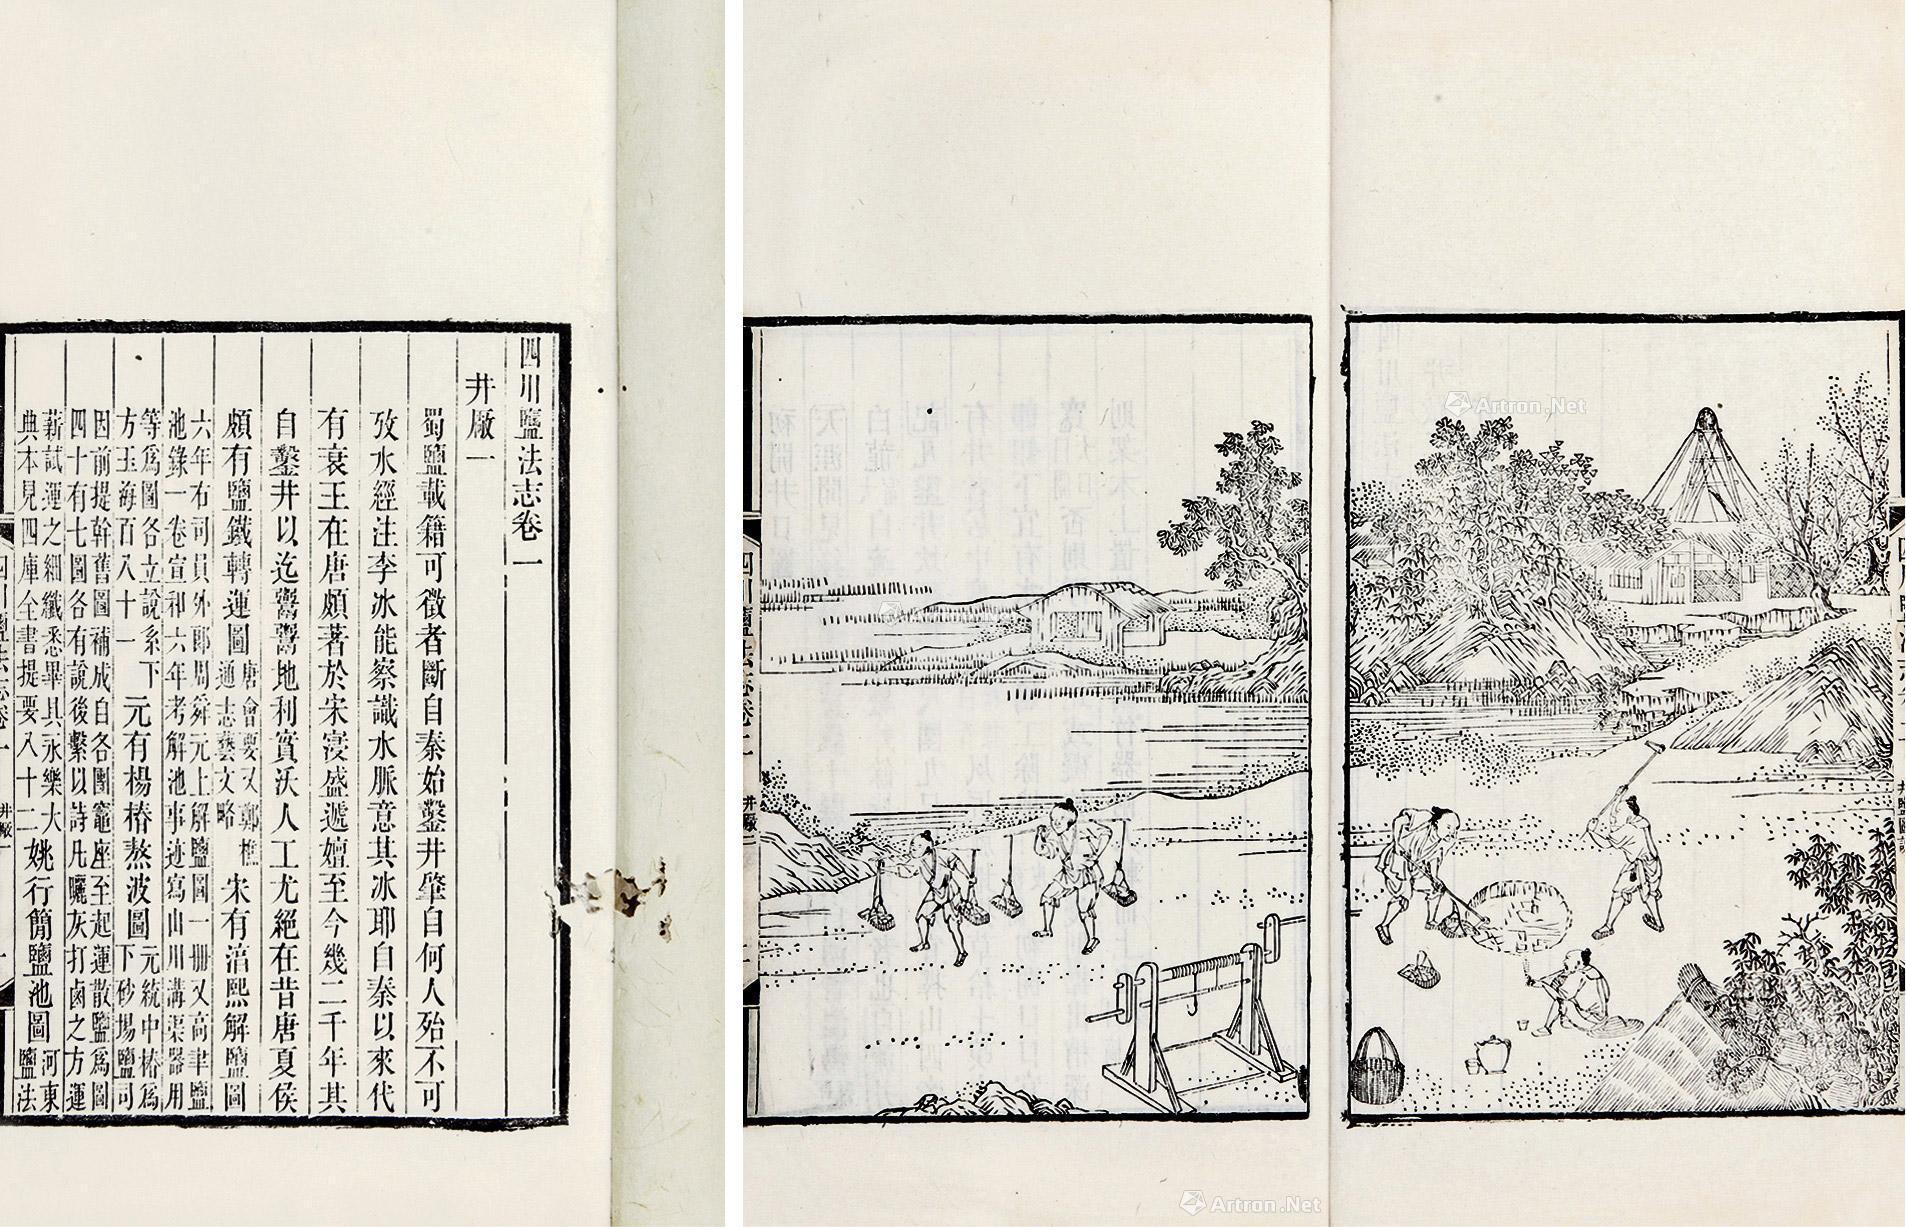 四川鹽法志卷一
井廠一
蜀鹽載籍可徵者斷自秦始鑿井肇自何人殆不可
攷水經注李冰能察識水脈意其冰耶自秦以來代
有衰王在唐頗著於宋寖盛遞嬗至今幾二千年其
自鑿井以迄鬻鬻地利實沃人工尤絕在昔唐夏侯
頗有鹽鐵轉運圖唐會要又鄭樵通志藝文略宋有湇熙解鹽圖
六年布司員外郎周舜元上解鹽圖一冊又高聿鹽
池錄一卷宣和六年考解池事迹寫山川溝渠器用
等爲圖各立說系下元有楊椿熬波圖元統中椿爲
方玉海百八十一下砂場鹽司
因前提幹舊圖補成自各團竈座至起運散鹽爲圖
四十有七圖各有說後繫以詩凡曬灰打鹵之方運
薪試運之細纖悉畢具永樂大姚行簡鹽池圖河東
典本見四庫全書提要八十二鹽法
四川鹽法志卷一
井廠一
一
四川鹽法志卷二
井廠二
四川鹽法志卷二
井鹽圖說
Artron.Net
Artron.Net
Artron.Net